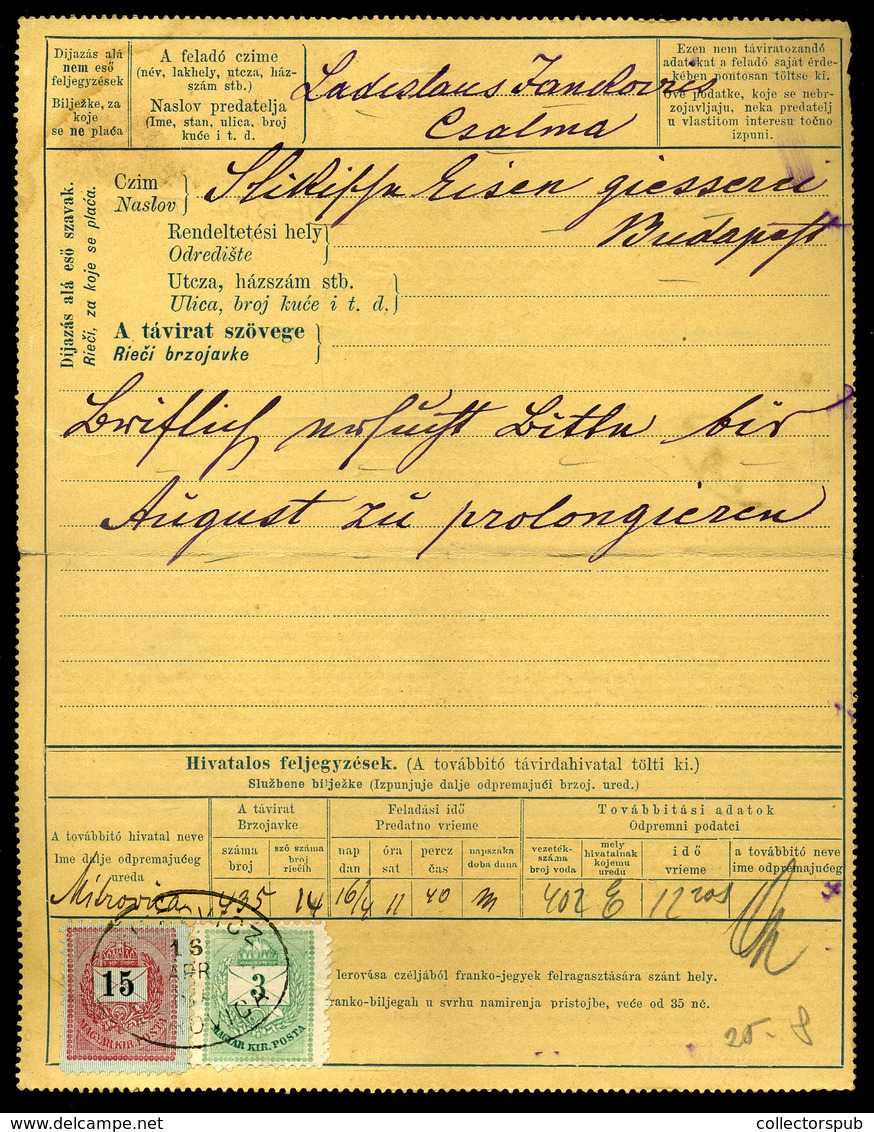 Díjazás alá
nem eső
feljegyzések
Bilježke, za
koje
se ne plaća
A feladó czime
(név, lakhely, utcza, ház-
szám stb.)
Naslov predatelja
(Ime, stan, ulica, broj
kuće i t. d.)
Ladislaus Jankovics
Csalma
Ezen nem táviratozandó
adatokat a feladó saját érde-
kében pontosan töltse ki.
Ove podatke, koje se nebr-
zojavljaju, neka predatelj
u vlastitom interesu točno
izpuni.
Díjazás alá eső szavak.
Rieči, za koje se plaća.
Czim
Naslov
Eisen giesserei
Rendeltetési hely
Odredište
Budapest
Utcza, házszám stb.
Ulica, broj kuće i t. d.
A távirat szövege
Rieči brzojavke
Briflich ersucht Bitte bis
August zu prolongieren
Hivatalos feljegyzések. (A továbbitó távirdahivatal tölti ki.)
Službene bilježke (Izpunjuje dalje odpremajući brzoj. ured.)
A továbbitó hivatal neve
Ime dalje odpremajućeg
ureda
A távirat
Brzojavke
száma
broj
szó száma
broj
riečih
Feladási idő
Predatno vrieme
nap
dan
óra
sat
percz
čas
napszaka
doba dana
Továbbitási adatok
Odpremni podatci
vezeték-
száma
broj voda
mely
hivatalnak
kojemu
uredu
idő
vrieme
a továbbitó neve
ime odpremajućeg
Mitrovica 435 14 16/4 11 40 m 402 E 12 20
16
APR
15
MAGYAR KIR. POSTA
3
MAGYAR KIR. POSTA
lerovása czéljából franko-jegyek felragasztására szánt hely.
franko-biljegah u svrhu namirenja pristojbe, veće od 35 nč.
collectorspub
collectorspub.com